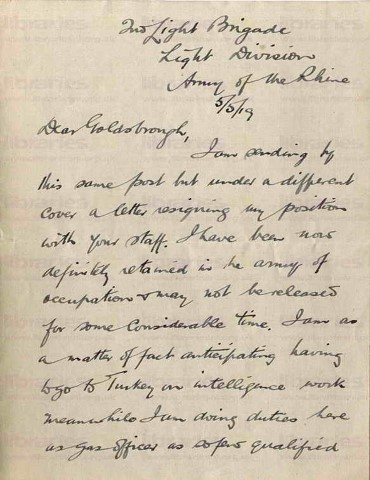 2nd Light Brigade
Light Division
Army of the Rhine
5/5/19
Dear Goldsbrough,
I am sending by
this same post but under a different
cover a letter resigning my position
with your staff. I have been now
definitely retained in the army of
occupation & may not be released
for some considerable time. I am as
a matter of fact anticipating having
to go to Turkey on intelligence work
meanwhile I am doing duties here
as Gas officer as so few qualified